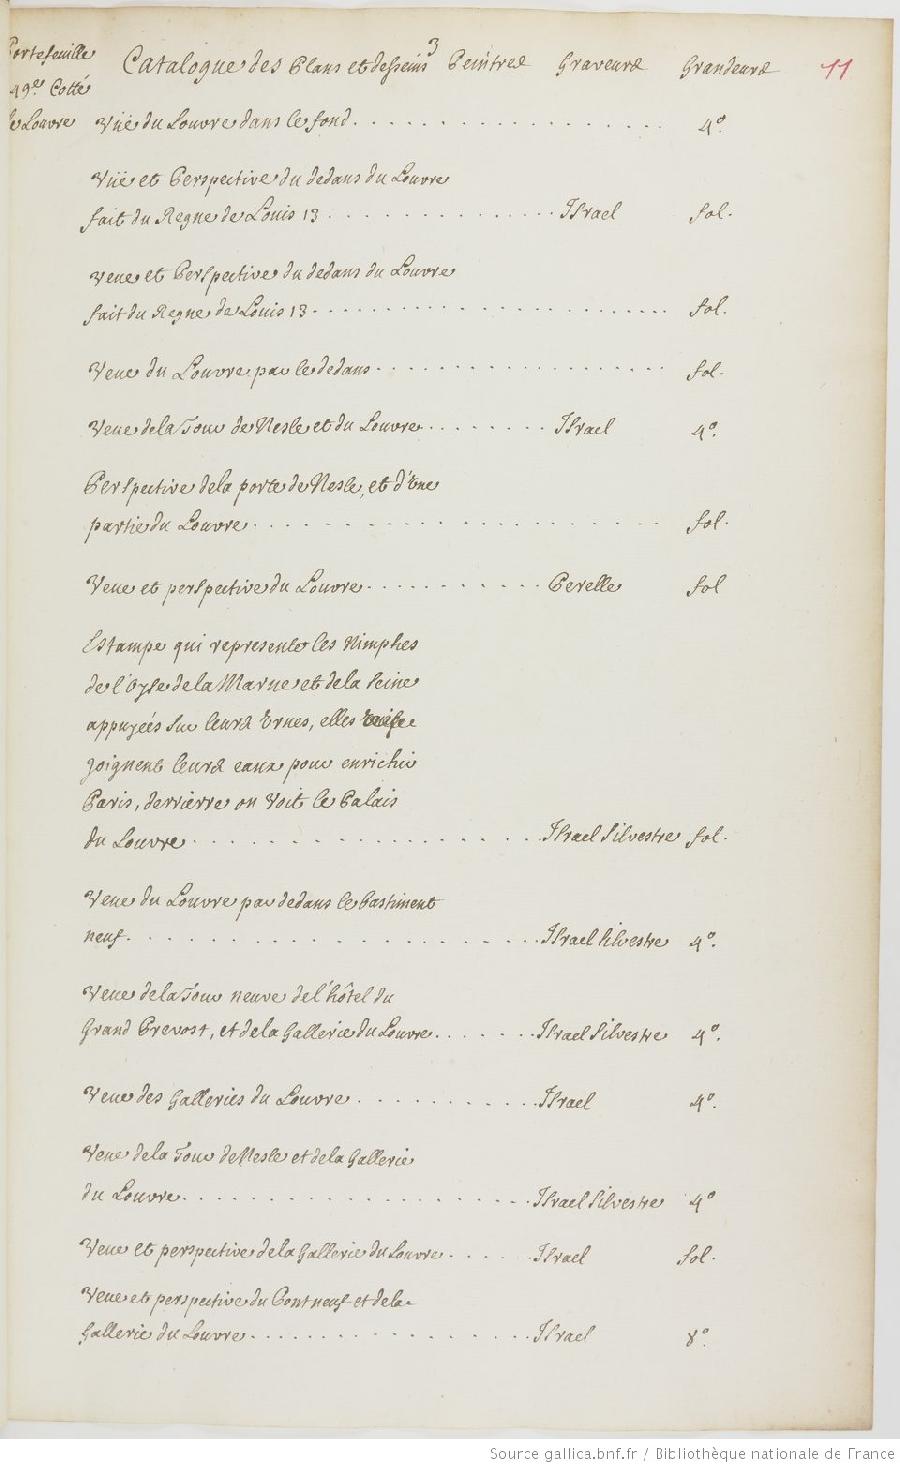 Portefeuille
49e Cotté
le Louvre
3
Catalogue des Plans et desseins Peintres Graveurs Grandeurs 11
Vüe du Louvre dans le fond. . . . . . . . . . . . . . . . . . 4°.
Vüe et Perspective du dedans du Louvre
fait du Regne de Louis 13 . . . . . . . . . . . . . Israel fol.
Veue et Perspective du dedans du Louvre
fait du Regne de Louis 13 . . . . . . . . . . . . . . . . . . . . . fol.
Veue du Louvre par le dedans . . . . . . . . . . . . . . . . . fol.
Veue de la Tour de Nesle et du Louvre . . . . . . . . Israel 4°.
Perspective de la porte de Nesle, et d'Une
partie du Louvre . . . . . . . . . . . . . . . . . . . . . . fol.
Veue et perspective du Louvre . . . . . . . . . . . Perelle fol
Estampe qui represente les Nimphes
de l'Oyse de la Marne et de la Seine
appuyeés sur leurs Urnes, elles
joignent leurs eaux pour enrichir
Paris, derrierre on Voit le Palais
du Louvre . . . . . . . . . . . . . . . . . . . Israel Silvestre fol.
Veue du Louvre par dedans le bastiment
neuf. . . . . . . . . . . . . . . . . . . . . . Israel Silvestre 4°.
Veue de la Tour neuve de l'hôtel du
Grand Prevost, et de la Gallerie du Louvre. . . . . . . Israel Silvestre 4°.
Veue des Galleries du Louvre . . . . . . . . . . . Israel 4°.
Veue de la Tour de Nesle et de la Gallerie
du Louvre. . . . . . . . . . . . . . . . . . . . Israel Silvestre 4°
Veue et perspective de la Gallerie du Louvre . . . . . Israel fol.
Veue et perspective du Pont neuf et de la
Gallerie du Louvre . . . . . . . . . . . . . . . . Israel 8°.
Source gallica.bnf.fr / Bibliothèque nationale de France